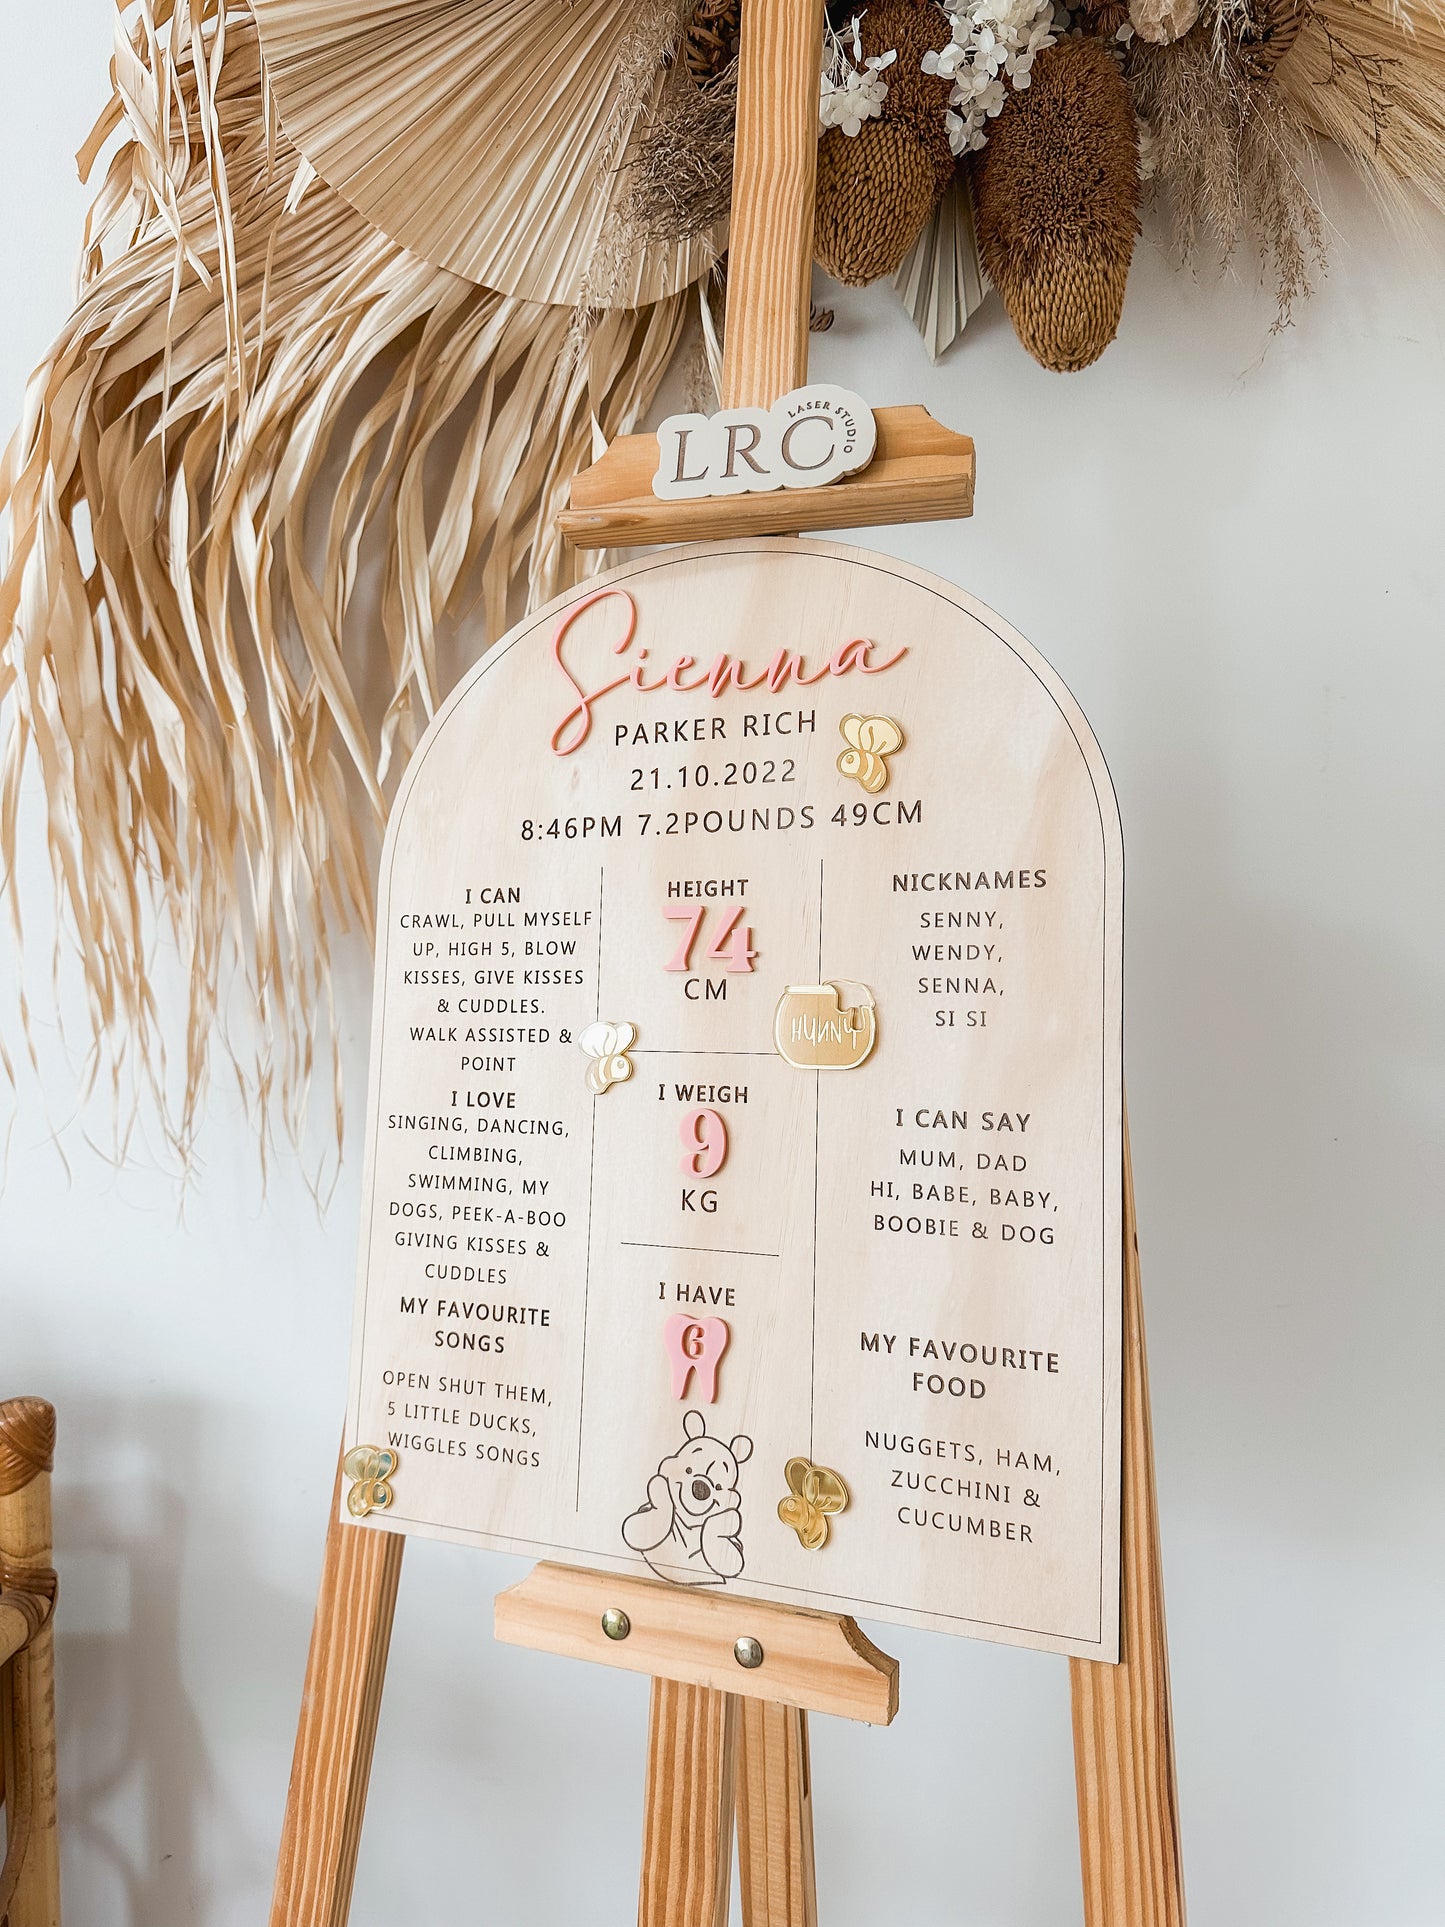 LRC
LASER STUDIO
Sienna
PARKER RICH
21.10.2022
8:46PM 7.2POUNDS 49CM
I CAN
CRAWL, PULL MYSELF
UP, HIGH 5, BLOW
KISSES, GIVE KISSES
& CUDDLES.
WALK ASSISTED &
POINT
I LOVE
SINGING, DANCING,
CLIMBING,
SWIMMING, MY
DOGS, PEEK-A-BOO
GIVING KISSES &
CUDDLES
MY FAVOURITE
SONGS
OPEN SHUT THEM,
5 LITTLE DUCKS,
WIGGLES SONGS
HEIGHT
74
CM
HUNNY
I WEIGH
9
KG
I HAVE
6
NICKNAMES
SENNY,
WENDY,
SENNA,
SI SI
I CAN SAY
MUM, DAD
HI, BABE, BABY,
BOOBIE & DOG
MY FAVOURITE
FOOD
NUGGETS, HAM,
ZUCCHINI &
CUCUMBER